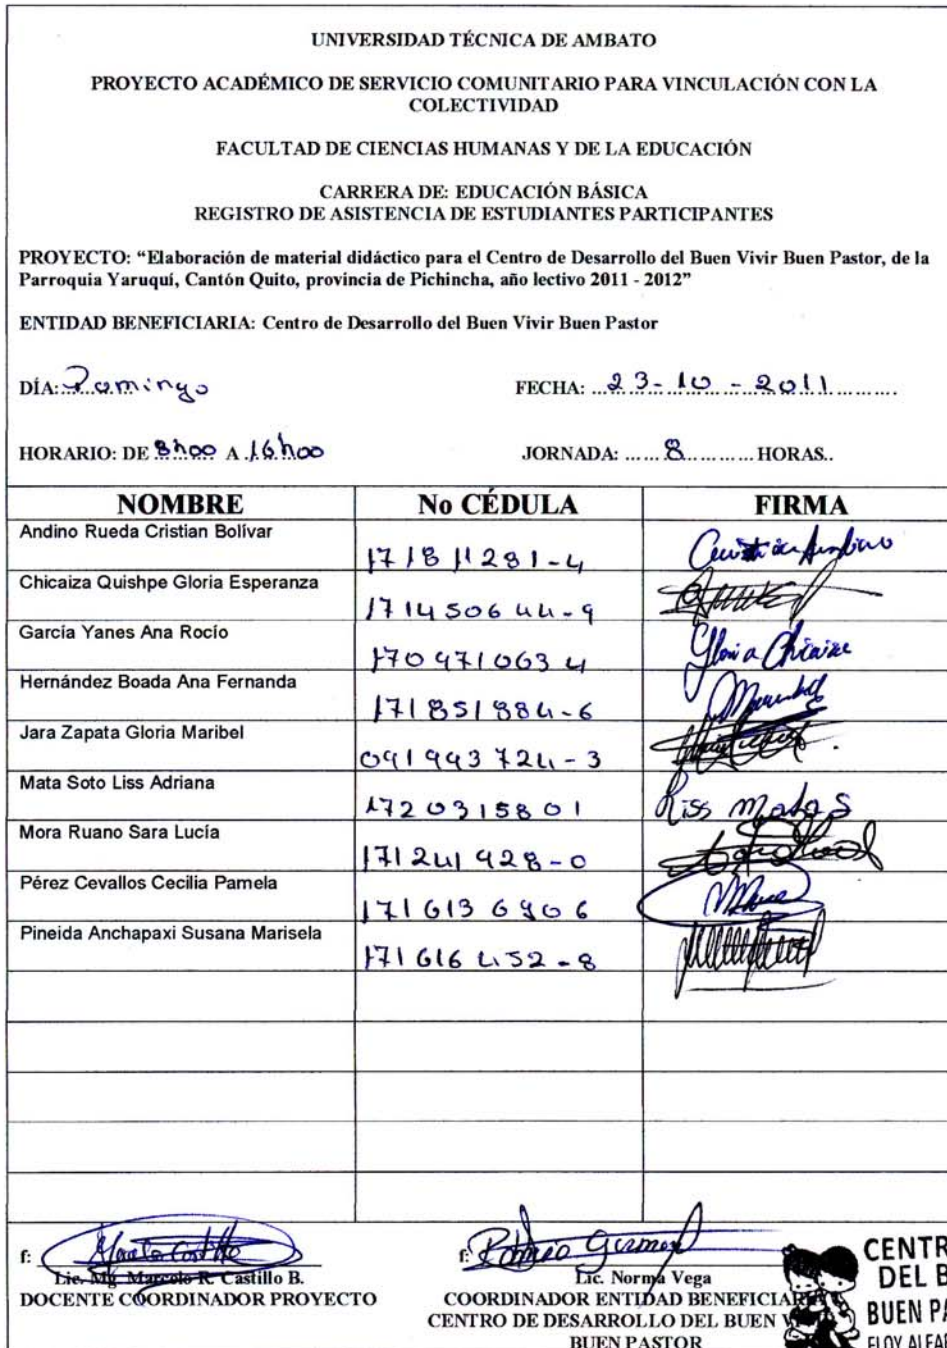 UNIVERSIDAD TÉCNICA DE AMBATO
PROYECTO ACADÉMICO DE SERVICIO COMUNITARIO PARA VINCULACIÓN CON LA
COLECTIVIDAD
FACULTAD DE CIENCIAS HUMANAS Y DE LA EDUCACIÓN
CARRERA DE: EDUCACIÓN BÁSICA
REGISTRO DE ASISTENCIA DE ESTUDIANTES PARTICIPANTES
PROYECTO: “Elaboración de material didáctico para el Centro de Desarrollo del Buen Vivir Buen Pastor, de la
Parroquia Yaruquí, Cantón Quito, provincia de Pichincha, año lectivo 2011 - 2012”
ENTIDAD BENEFICIARIA: Centro de Desarrollo del Buen Vivir Buen Pastor
DÍA: Domingo FECHA: 23-10-2011
HORARIO: DE 8h00 A 16h00 JORNADA: 8 HORAS..
NOMBRE No CÉDULA FIRMA
Andino Rueda Cristian Bolívar 171811281-4
Chicaiza Quishpe Gloria Esperanza 171450644-9
García Yanes Ana Rocío 1709710634 Gloria Chicaiza
Hernández Boada Ana Fernanda 171851884-6
Jara Zapata Gloria Maribel 091993724-3
Mata Soto Liss Adriana 1720315801 Liss Mata S
Mora Ruano Sara Lucía 171241928-0
Pérez Cevallos Cecilia Pamela 1716136906
Pineida Anchapaxi Susana Marisela 171616452-8
f: f:
Lic. Mg. Marcelo R. Castillo B. Lic. Norma Vega
DOCENTE COORDINADOR PROYECTO COORDINADOR ENTIDAD
CENTRO DE DESARROLLO DEL BUEN
BUEN PASTOR
CENTR
DEL B
BUEN PA
ELOY ALFAR